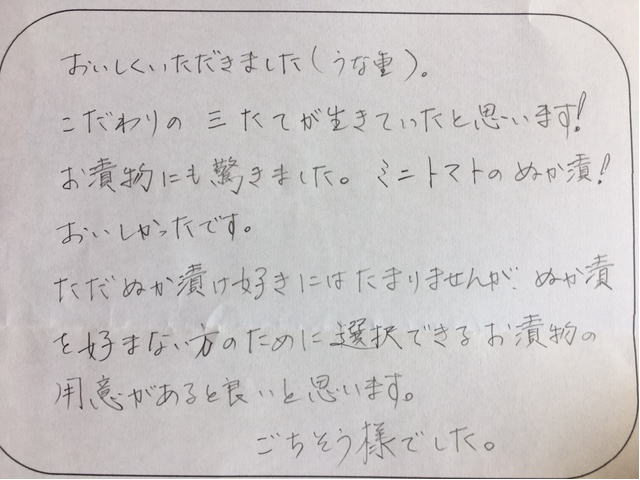 おいしくいただきました(うな重)。
こだわりの 三たてが生きていたと思います!
お漬物にも驚きました。ミニトマトのぬか漬!
おいしかったです。
ただぬか漬け好きにはたまりませんが、ぬか漬
を好まない方のために選択できるお漬物の
用意があると良いと思います。
ごちそう様でした。